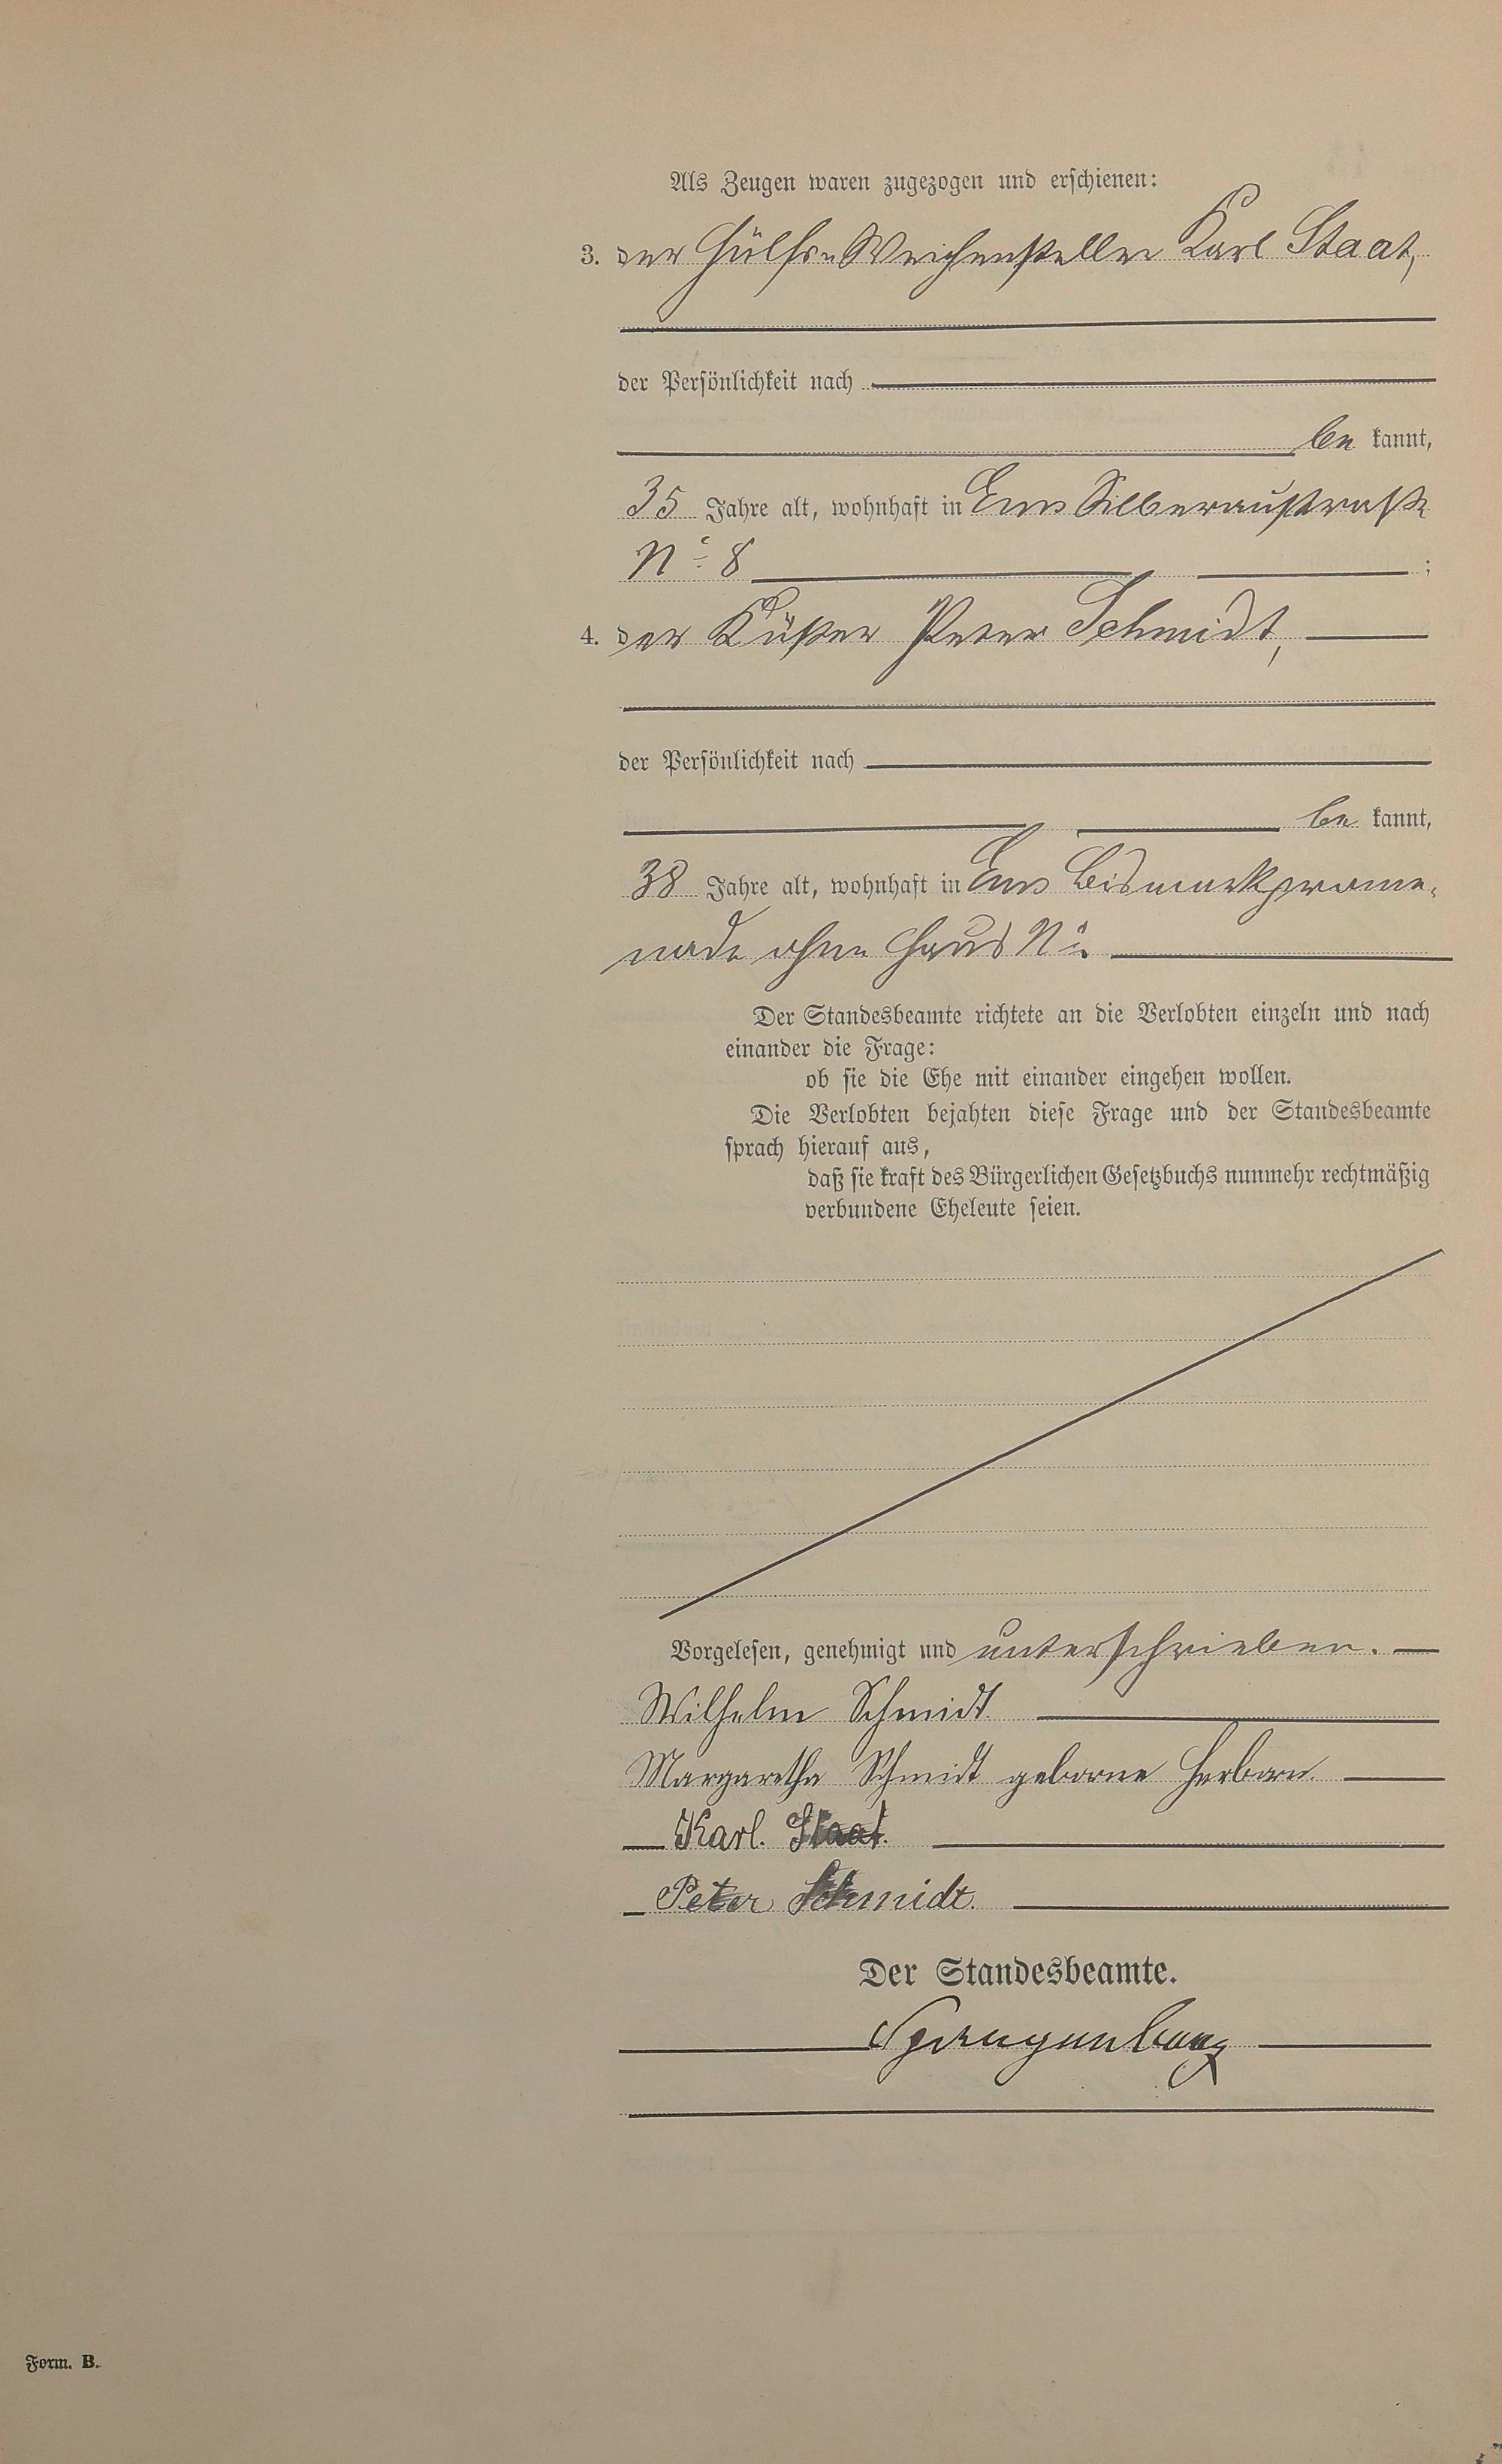 Als Zeugen waren zugezogen und erschienen:
3. der Hülfs-Weichensteller Karl Staat,
der Persönlichkeit nach
be kannt,
35 Jahre alt, wohnhaft in Ems Silberaustraße
No 8 ;
4. der Küster Peter Schmidt,
der Persönlichkeit nach
be kannt,
38 Jahre alt, wohnhaft in Ems Bismarkprome-
nade ohne Haus No
Der Standesbeamte richtete an die Verlobten einzeln und nach
einander die Frage:
ob sie die Ehe mit einander eingehen wollen.
Die Verlobten bejahten diese Frage und der Standesbeamte
sprach hierauf aus,
daß sie kraft des Bürgerlichen Gesetzbuchs nunmehr rechtmäßig
verbundene Eheleute seien.
Vorgelesen, genehmigt und unterschrieben.
Wilhelm Schmidt
Margaretha Schmidt geborne Herborn.
Karl. Staat.
Peter Schmidt.
Der Standesbeamte.
Form. B.